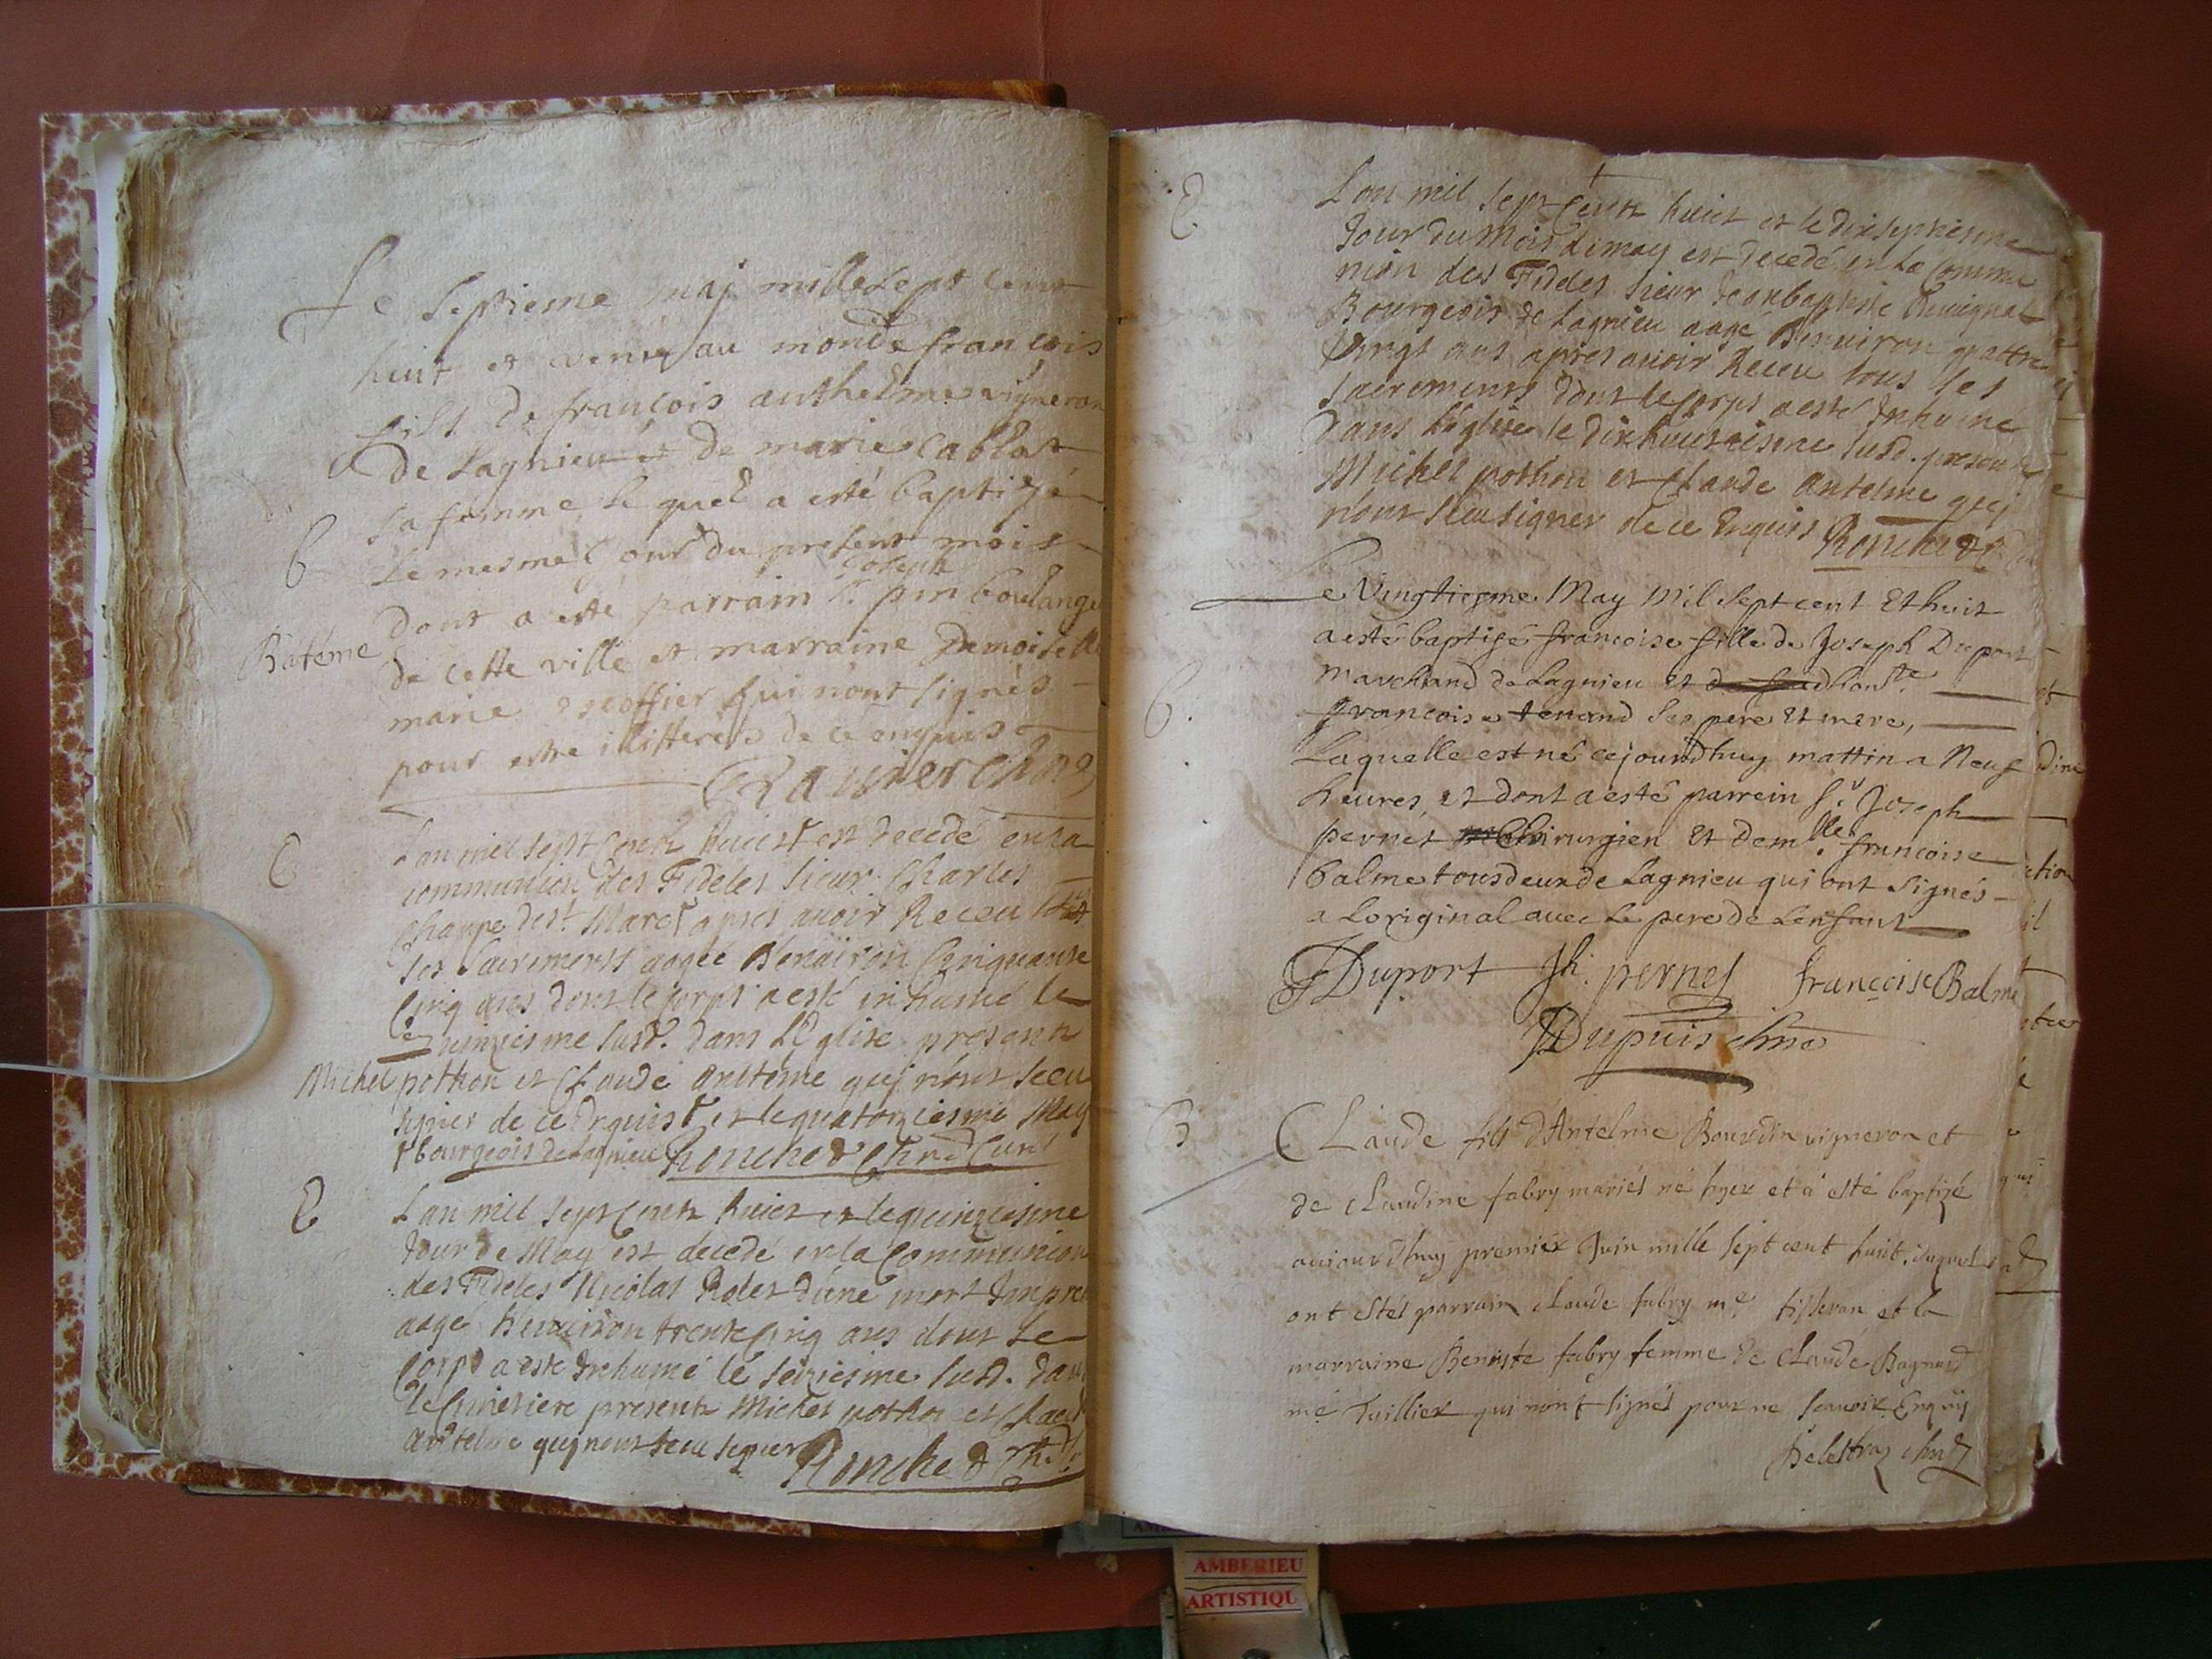 Le septieme maj mille sept cent
huit et venu au monde francois
fils de francois anthelme vigneron
de Lagnieu et de marie Cablat
sa femme le quel a esté baptizé
B
Le mesme jour du present mois
joseph
dont a esté parrain Sr. pin boulange
Batême
de cette ville et marraine Demoiselle
marie escoffier qui n'ont signés
pour estre illitterés de ce enquis
C
L'an mil sept Cents huict est decedé en la
communion des Fideles sieur Charles
Chappe de st. Marc apres avoir Receu tous
les sacrements aagée d'enuiron Cinquante
Cinq ans dont le corps a esté inhumé le
quinziesme susd. dans l'Eglise presents
Michel pothon et Claude antelme quj n'ont sceu
signer de ce Enquis et le quatorziesme May
bourgeois de Lagnieu Ronchod Chne Curé
E
L'an mil sept Cents huict et le quinziesme
Jour de May est decedé en la Communion
des Fideles Nicolas Rolet d'une mort Impre
aagé d'enuiron trente Cinq ans dont le
Corps a esté Inhumé le seiziesme susd. dans
le Cimetiere presents Michel pothon et Claude
antelme quj n'ont sceu signer Ronchod
E
L'an mil sept Cents huict et le dix septiesme
Jour du Mois de may est decedé en la Commu
nion des Fideles sieur Jean baptiste
Bourgeois de Lagnieu aagé d'enuiron quattre
vingt ans apres avoir Receu tous les
sacrements dont le Corps a esté Inhumé
dans l'église le dix huictiesme susd. presents
Michel pothon et Claude antelme quj
n'ont sceu signer de ce Enquis Ronchod
Le Vingtiesme May Mil Sept cent Et huit
a esté baptisé francoise fille de Joseph Duport
marchand de Lagnieu Et honte.
B.
francoise tenand ses pere Et mere,
Laquelle est né cejourdhuy mattin a Neuf
heures, et dont a esté parrein Sr. Joseph
pernet Chirurgien Et demlle. francoise
balme tous deux de Lagnieu qui ont signés
a Loriginal avec Le pere de Lenfant
J Duport Jh. pernet françoise Balme
Dupuis chne
B
Claude fils d'Antelme Bourdin vigneron et
de claudine fabry mariés né hyer et a esté baptizé
aujourdhuy premier Juin mille sept cent huit, duquel
ont estés parrain claude fabry me. tisseran et la
marraine Beniste fabry femme de claude Bagnard
me Tuillier qui n'ont signés pour ne scavoir Enquis
AMBERIEU
ARTISTIQU